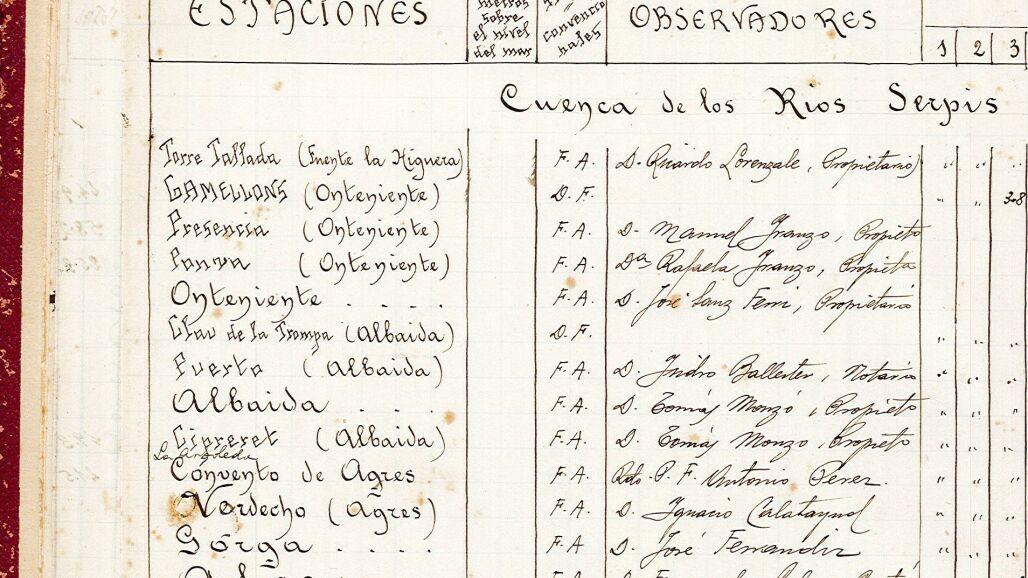 ESTACIONES metros sobre el nivel del mar convencionales OBSERVADORES
1 2 3
Cuenca de los Rios Serpis
Torre Tallada (Fuente la Higuera) F. A. D. Ricardo Lorenzale, Propietario
GAMELLONS (Onteniente) D. F. " " 3.8
Presencia (Onteniente) F. A. D. Manuel Iranzo, Propieto
(Onteniente) F. A. Dª Rafaela Iranzo, Propieta
Onteniente . . . . F. A. D. José Sanz Ferri, Propietario
Clau de la Trompa (Albaida) D. F. " " "
Puerto (Albaida) F. A. D. Isidro Ballester, Notario " " "
Albaida . . . . F. A. D. Tomás Monzó, Propieto " " "
Cipreret (Albaida) F. A. D. Tomás Monzo, Propieto " " "
La Arboleda
Convento de Agres F. A. Rdo. P. F. Antonio Perez. " " "
Nordecho (Agres) F. A. D. Ignacio Calatayud " " "
Gorga . . . . F. A D. José Ferrandiz " " "